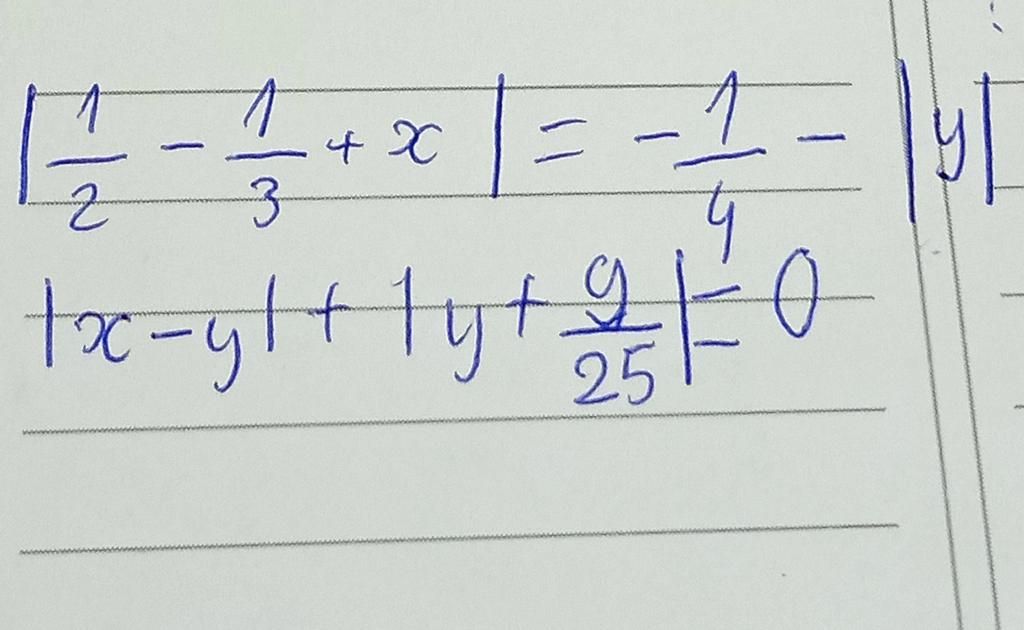 |1/2 - 1/3 + x| = -1/4 - |y|
|x - y| + |y + 9/25| = 0